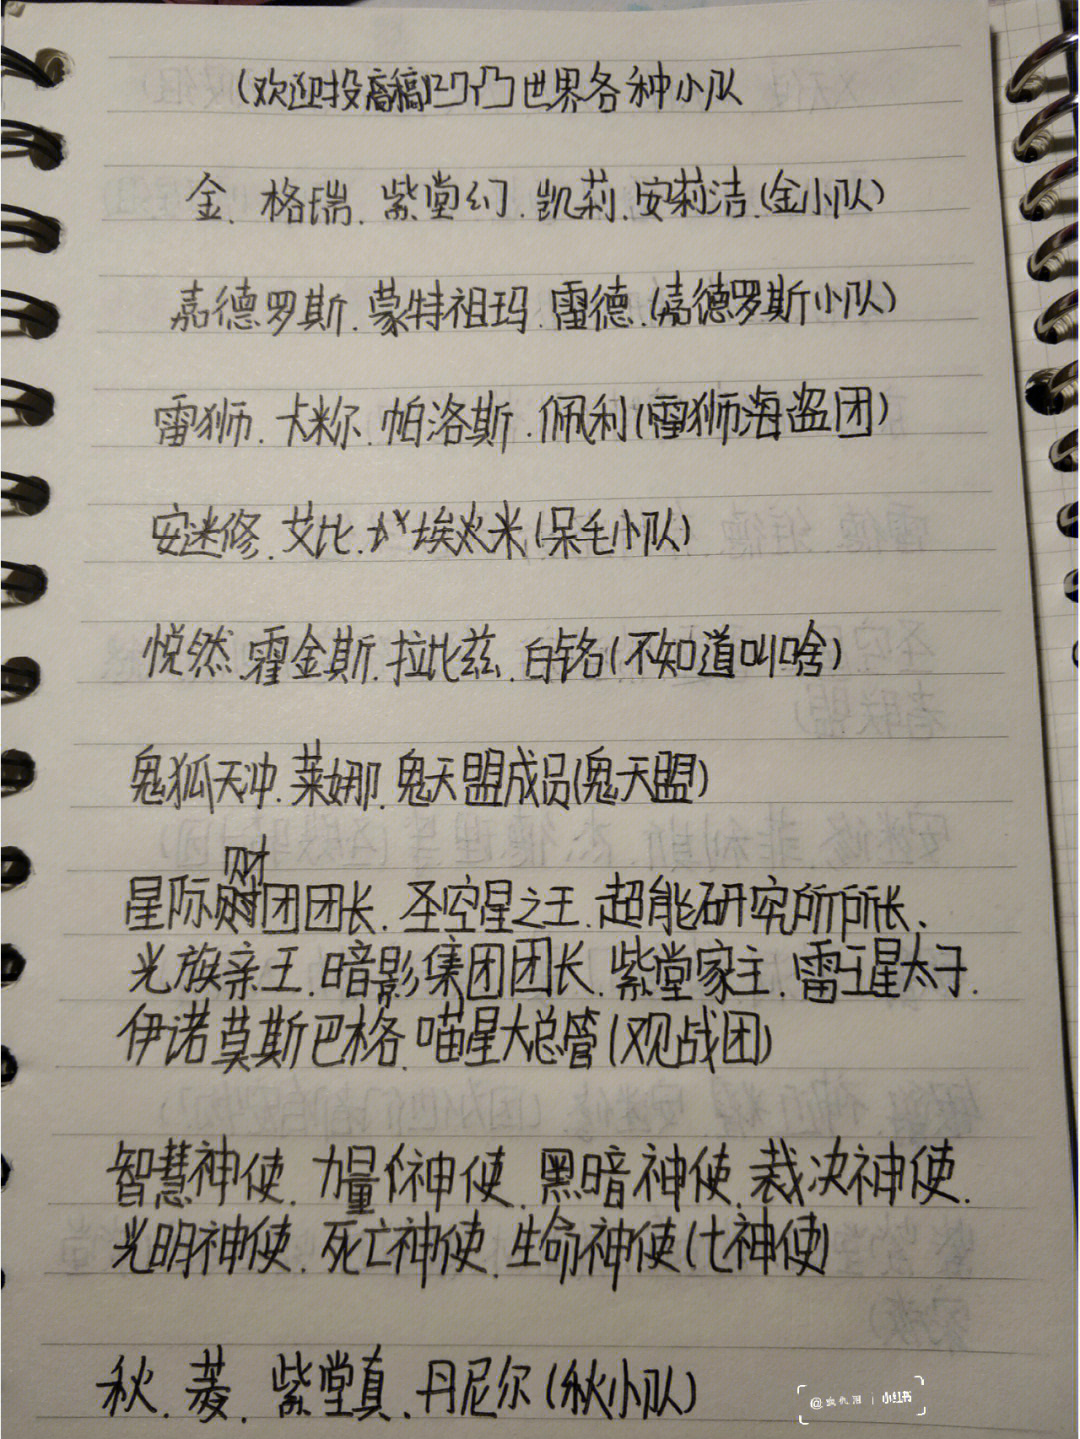 (欢迎投稿)凹凸世界各种小队
金.格瑞.紫堂幻.凯莉.安莉洁.(金小队)
嘉德罗斯.蒙特祖玛.雷德.(嘉德罗斯小队)
雷狮.卡米尔.帕洛斯.佩利(雷狮海盗团)
安迷修.艾比.埃米(呆毛小队)
悦然.霍金斯.拉比兹.白铭(不知道叫啥)
鬼狐天冲.莱娜.鬼天盟成员(鬼天盟)
星际财团团长.圣空星之王.超能研究所所长.
光族亲王.暗影集团团长.紫堂家主.雷王星太子.
伊诺莫斯巴格.喵星大总管(观战团)
智慧神使.力量神使.黑暗神使.裁决神使.
光明神使.死亡神使.生命神使(七神使)
秋.菱.紫堂真.丹尼尔(秋小队)
小红书